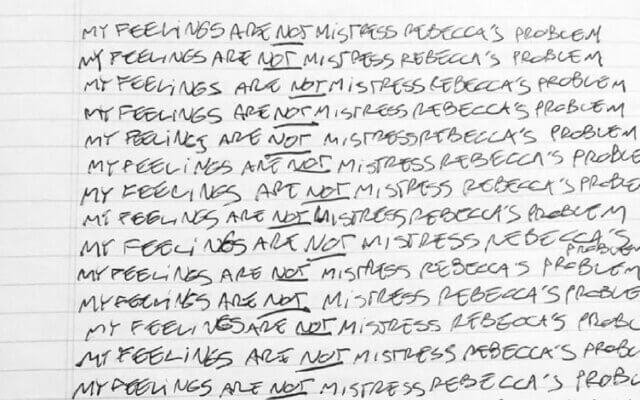 MY FEELINGS ARE NOT MISTRESS REBECCA'S PROBLEM
MY FEELINGS ARE NOT MISTRESS REBECCA'S PROBLEM
MY FEELINGS ARE NOT MISTRESS REBECCA'S PROBLEM
MY FEELINGS ARE NOT MISTRESS REBECCA'S PROBLEM
MY FEELINGS ARE NOT MISTRESS REBECCA'S PROBLEM
MY FEELINGS ARE NOT MISTRESS REBECCA'S PROBLE
MY FEELINGS ARE NOT MISTRESS REBECCA'S PROBLE
MY FEELINGS ARE NOT MISTRESS REBECCA'S PROBLEM
MY FEELINGS ARE NOT MISTRESS REBECCA'S PROBLEM
MY FEELINGS ARE NOT MISTRESS REBECCA'S PROBLEM
MY FEELINGS ARE NOT MISTRESS REBECCA'S PROBLE
MY FEELINGS ARE NOT MISTRESS REBECCA'S PROBL
MY FEELINGS ARE NOT MISTRESS REBECCA'S PROBL
MY FEELINGS ARE NOT MISTRESS REBECCA'S PROBLE